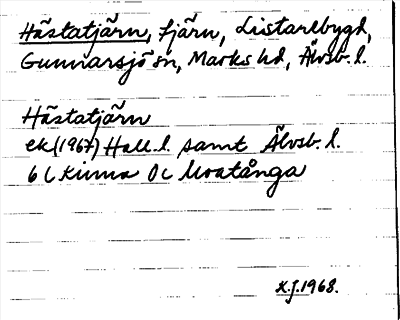 Hästatjärn, tjärn, Listarebygd,
Gunnarsjö sn, Marks hd, Älvsb. l.
Hästatjärn
ek (1967) Hall. l. samt Älvsb. l.
6 C Kinna 0 c Ulvatånga
X.J. 1968.